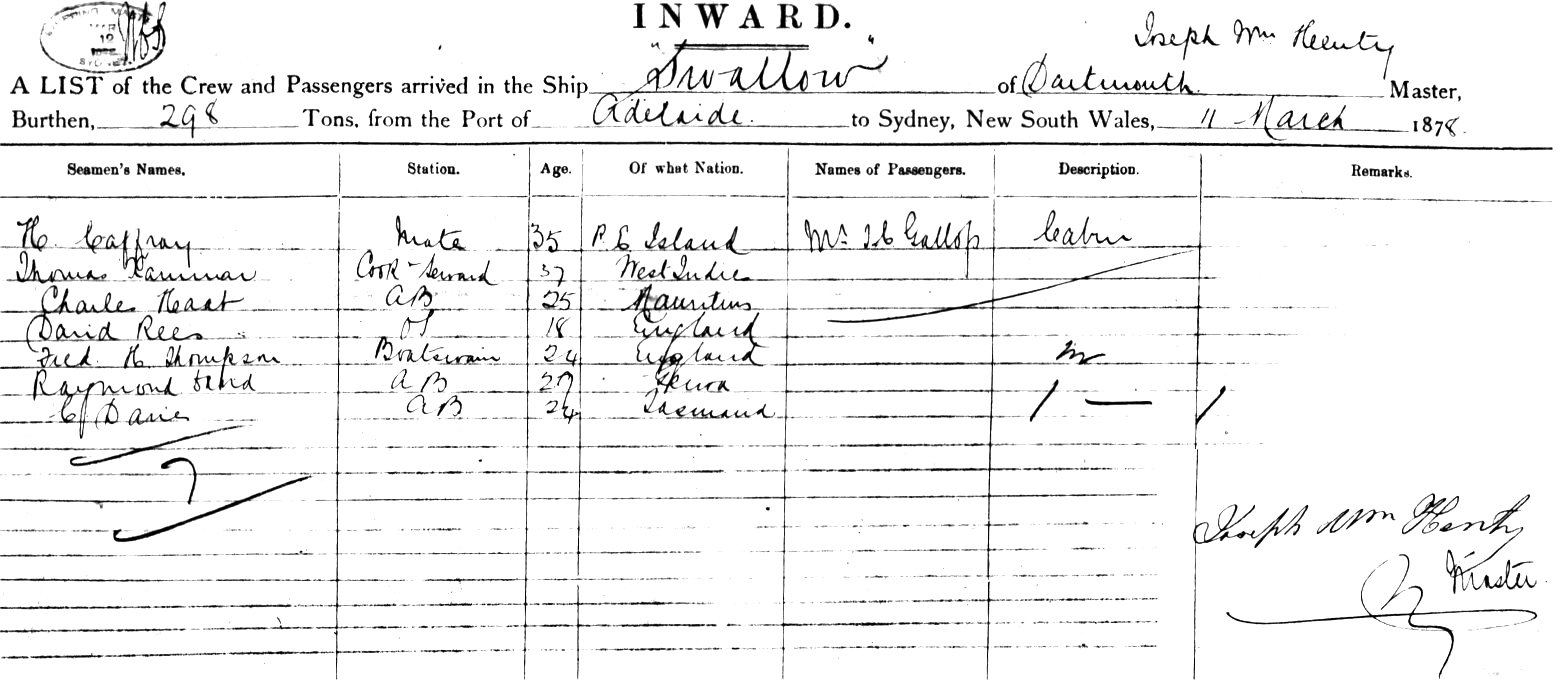 INWARD.
MAR
12
SYDNEY
Joseph Wm Henty
A LIST of the Crew and Passengers arrived in the Ship "Swallow" of Dartmouth Master,
Burthen, 298 Tons, from the Port of Adelaide. to Sydney, New South Wales, 11 March 1878.
Seamen's Names. Station. Age. Of what Nation. Names of Passengers. Description. Remarks.
H. Caffray Mate 35 P. E Island Mr. Gallop Cabin
Thomas Cook 37 West Indies
Charles AB 25 Mauritius
David Rees OS 18 England
Fred. H. Thompson Boatswain 24 England
Raymond AB
Davies AB 24
7 1 — 1
Joseph Wm Henty
Master